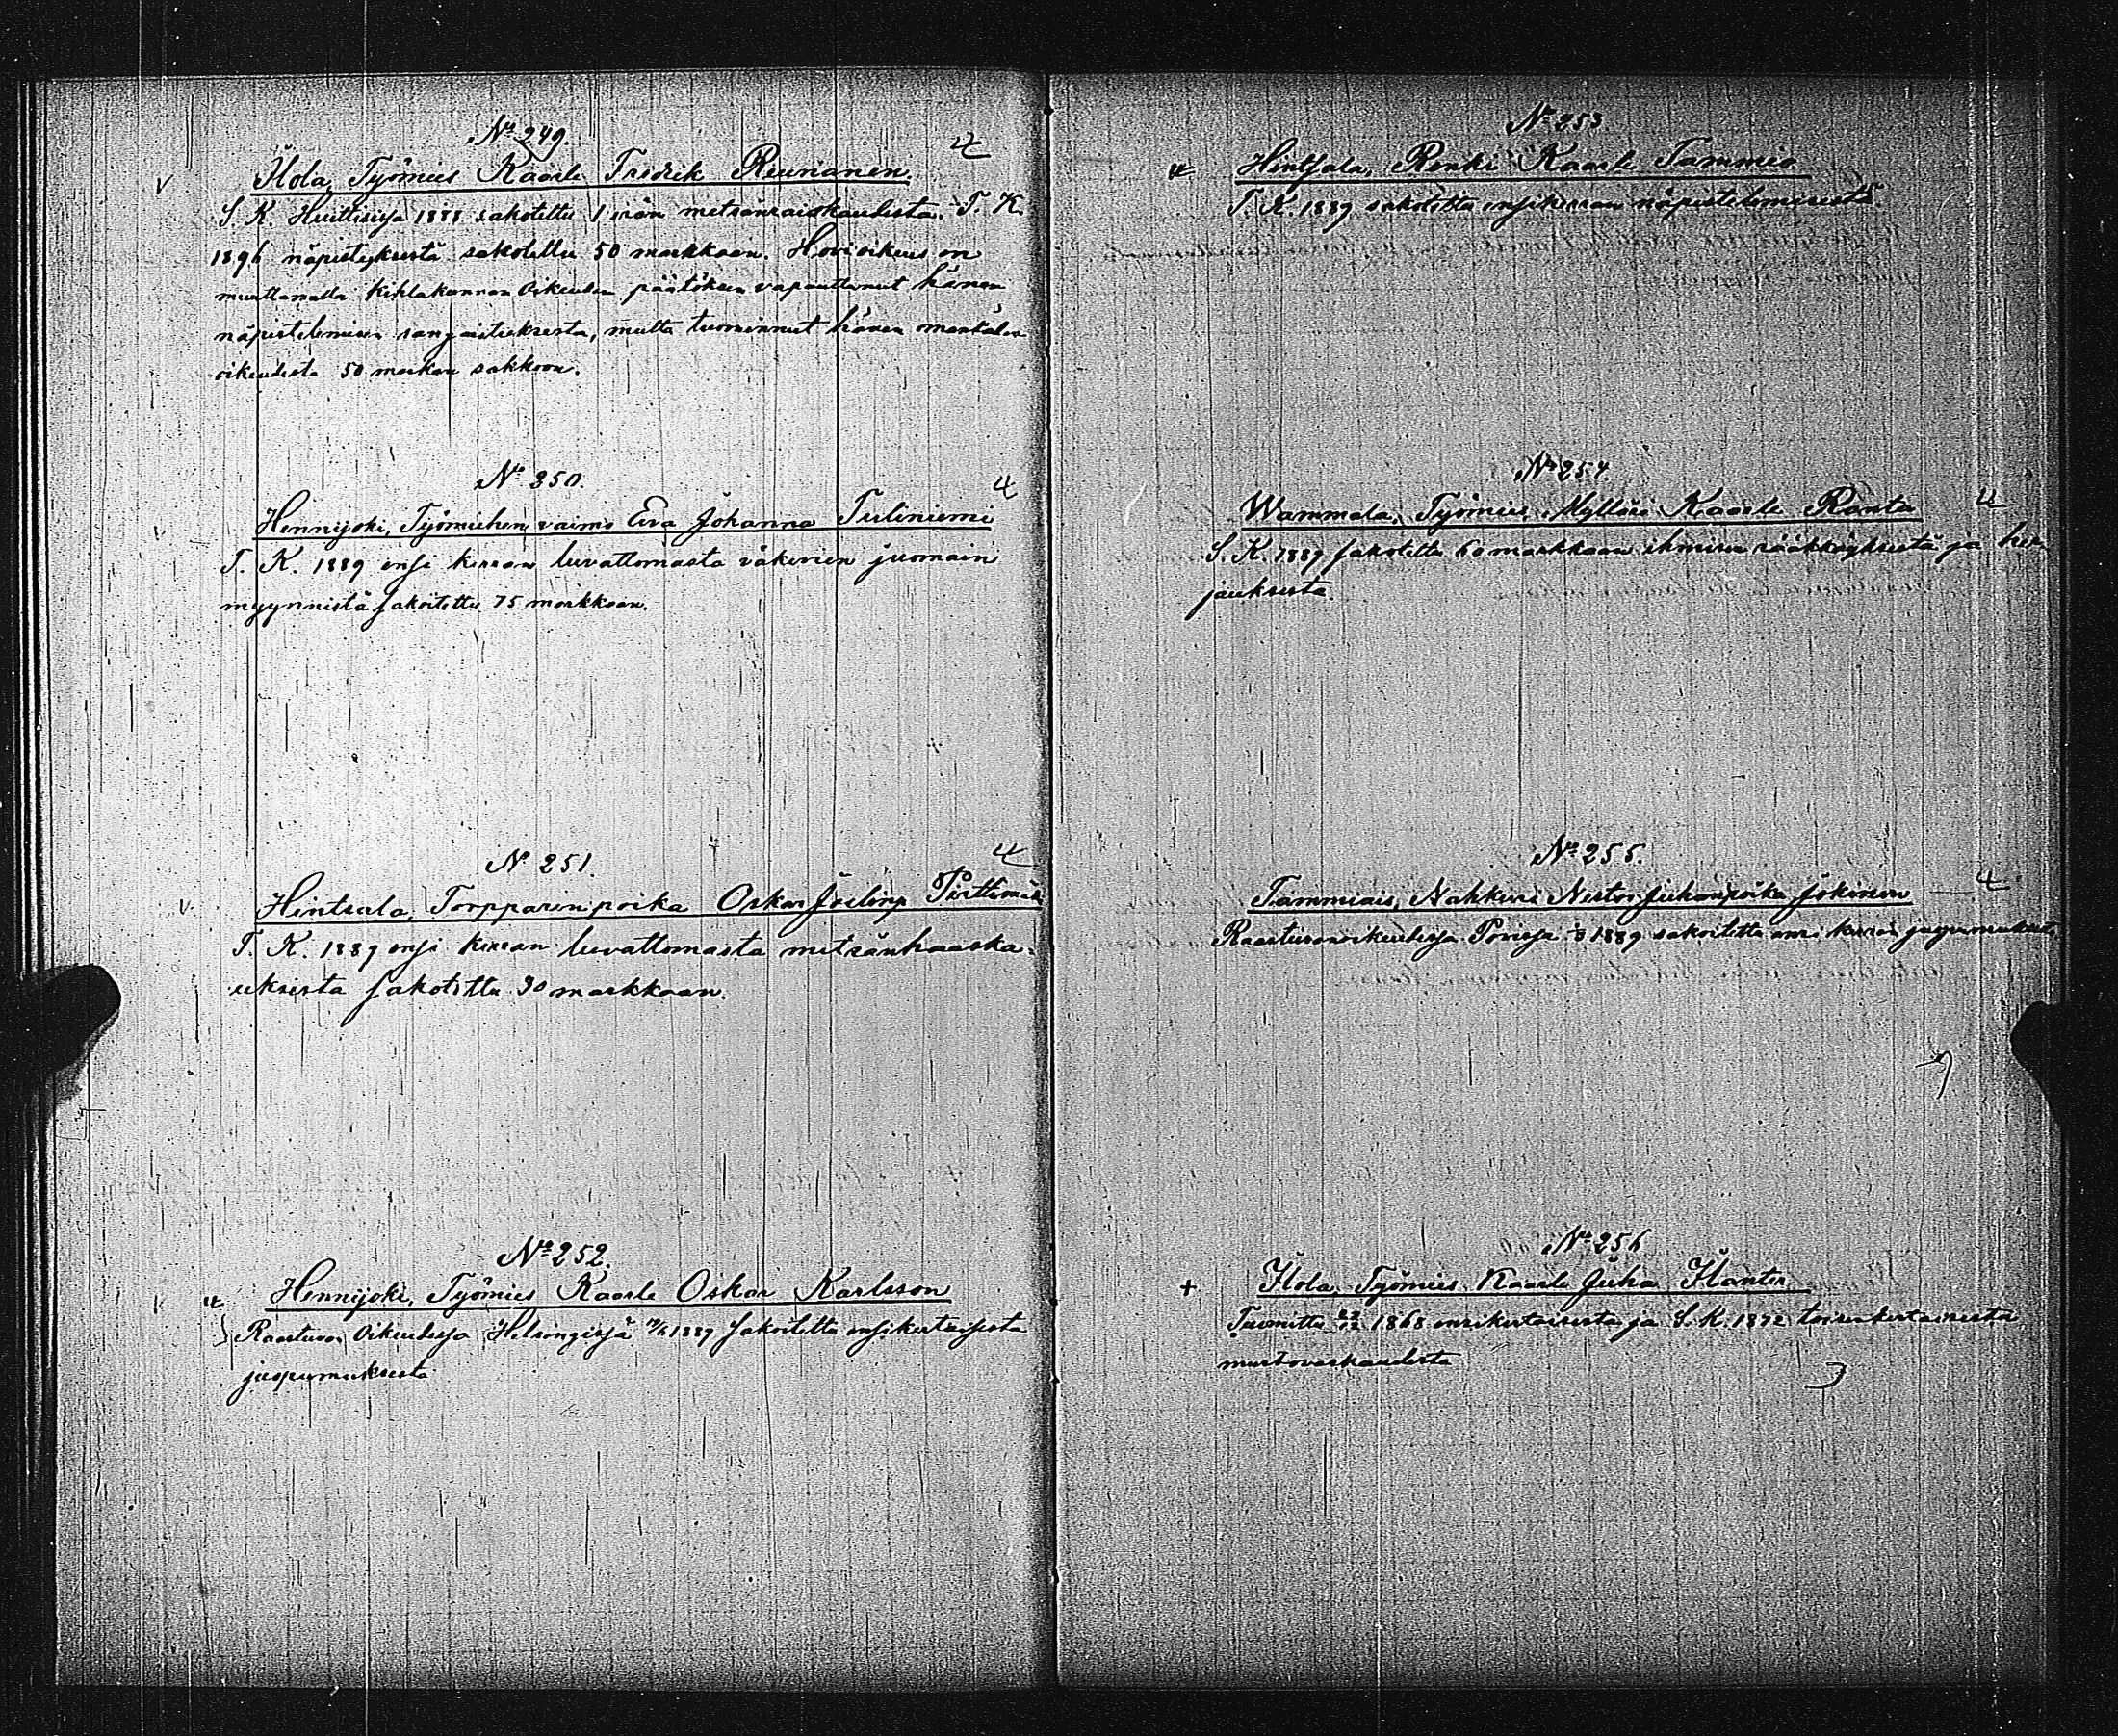 No 249.
Ilola, Työmies Kaarle Fredrik Reunanen.
S. K. Huittisissa 1888 sakotettu 1 irän metsänraiskaudesta. T. K.
1896 näpistyksestä sakotettu 50 markkaan. Hovioikeus on
muuttamalla Kihlakunnan Oikeuden päätöksen vapauttanut hänen
näpistelemisen rangaistuksesta, mutta tuominnut hänen omankäden
oikeudesta 50 markan sakkoon.
No 250.
Hennijoki, Työmiehen vaimo Eva Johanna Tuliniemi
T. K. 1889 ensi kerran luvattomasta väkevien juomain
myynnistä sakoitettu 75 markkaan.
No 251.
Hintsala, Torpparin poika Oskar Joeling Pirttimäk
T. K. 1889 ensi kerran luvattomasta metsänhaaska-
uksesta sakotettu 30 markkaan.
No 252.
Hennijoki, Työmies Kaarle Oskar Karlsson
Raastuvan Oikeudessa Helsingissä 1889 sakoitettu ensikertaisesta
juopumuksesta
No 253
Hintsala, Renki Kaarle Tammio
T. K. 1889 sakotettu ensikerran näpistelemisestä.
No 254.
Wammala, Työmies, Mylläri Kaarle Ranta
S. K. 1889 sakotettu 60 markkaan ihmisen rääkkäyksestä ja her-
jauksesta.
No 255.
Tammiais, Nahkuri Nestor Juhanpoika Jokinen
Raastuvanoikeudessa Porissa 1889 sakoitettu ensi kerran juopumuksesta
No 256
Ilola, Työmies Kaarle Juha Ilanter
Tuomittu 1868 ensikertaisesta ja S. K. 1872 toisenkertaisesta
murtovarkaudesta